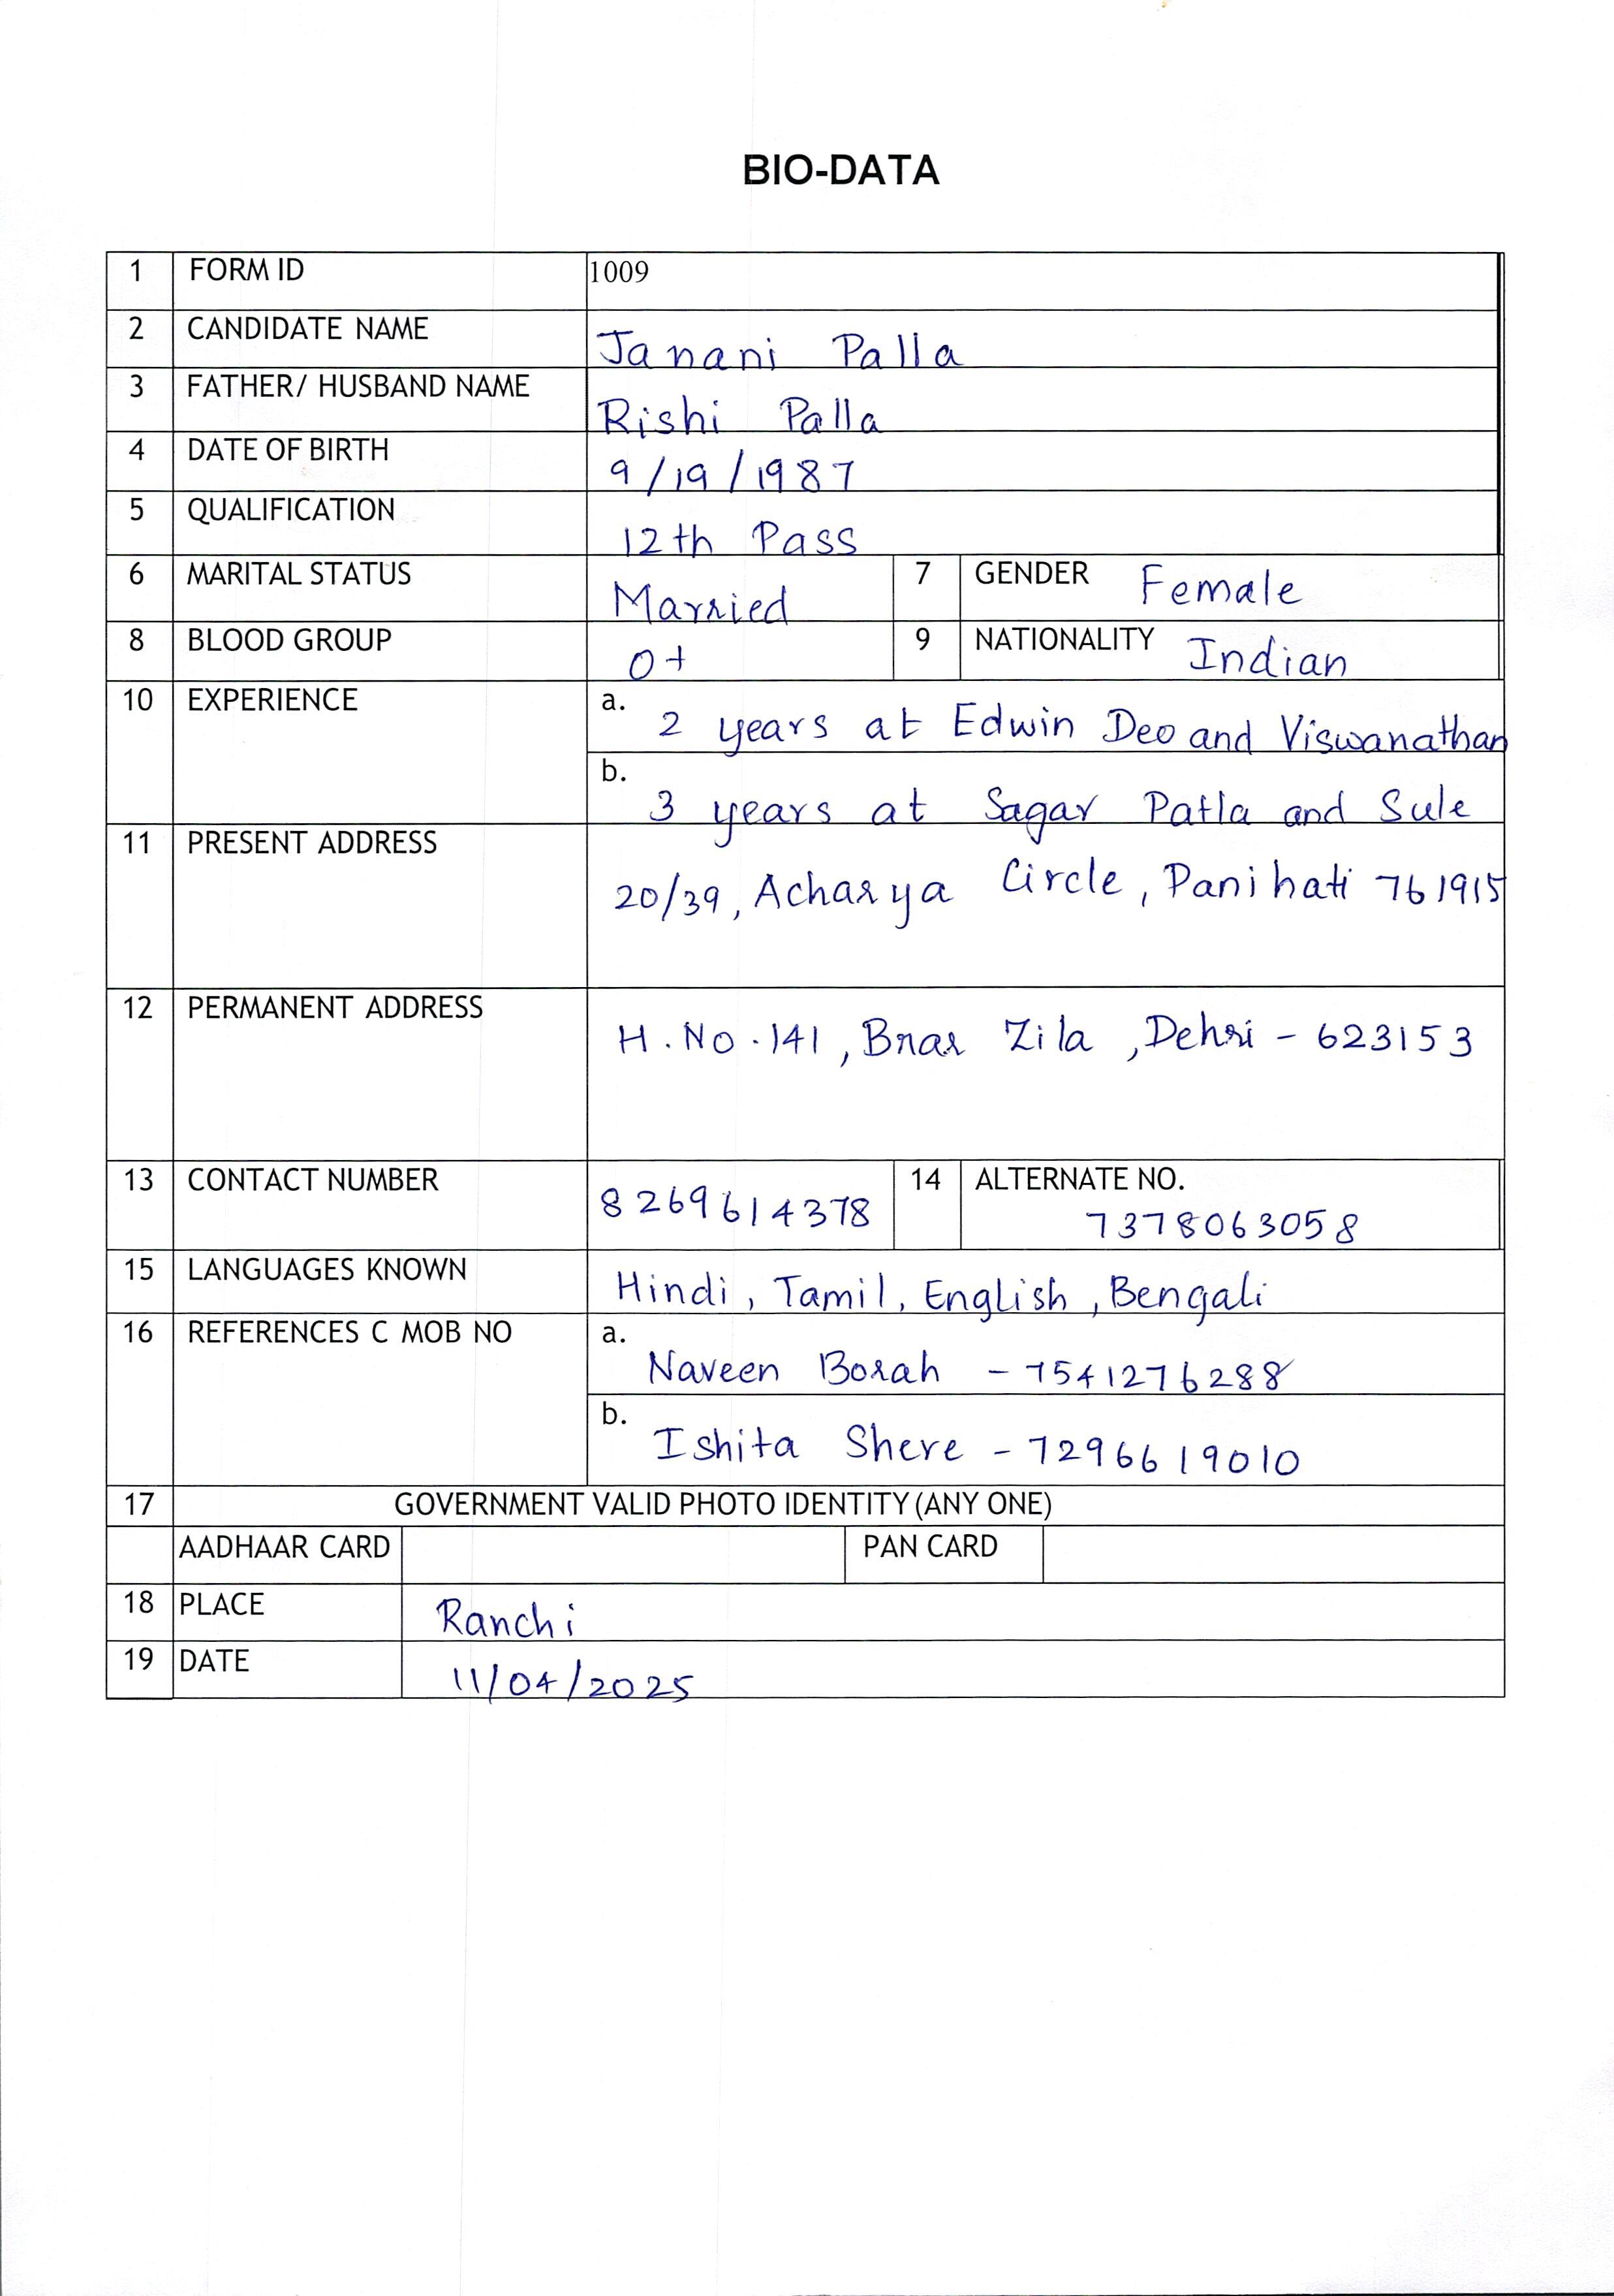 BIO-DATA
1 FORM ID 1009
2 CANDIDATE NAME Janani Palla
3 FATHER/ HUSBAND NAME Rishi Palla
4 DATE OF BIRTH 9/19/1987
5 QUALIFICATION 12th Pass
6 MARITAL STATUS Married 7 GENDER Female
8 BLOOD GROUP O+ 9 NATIONALITY Indian
10 EXPERIENCE a. 2 years at Edwin Deo and Viswanathan
b. 3 years at Sagar Patla and Sule
11 PRESENT ADDRESS 20/39, Acharya Circle, Panihati 761915
12 PERMANENT ADDRESS H.No.141, Brar Zila, Dehri - 623153
13 CONTACT NUMBER 8269614378 14 ALTERNATE NO.
7378063058
15 LANGUAGES KNOWN Hindi, Tamil, English, Bengali
16 REFERENCES C MOB NO a. Naveen Borah - 7541276288
b. Ishita Shere - 7296619010
17 GOVERNMENT VALID PHOTO IDENTITY (ANY ONE)
AADHAAR CARD PAN CARD
18 PLACE Ranchi
19 DATE 11/04/2025